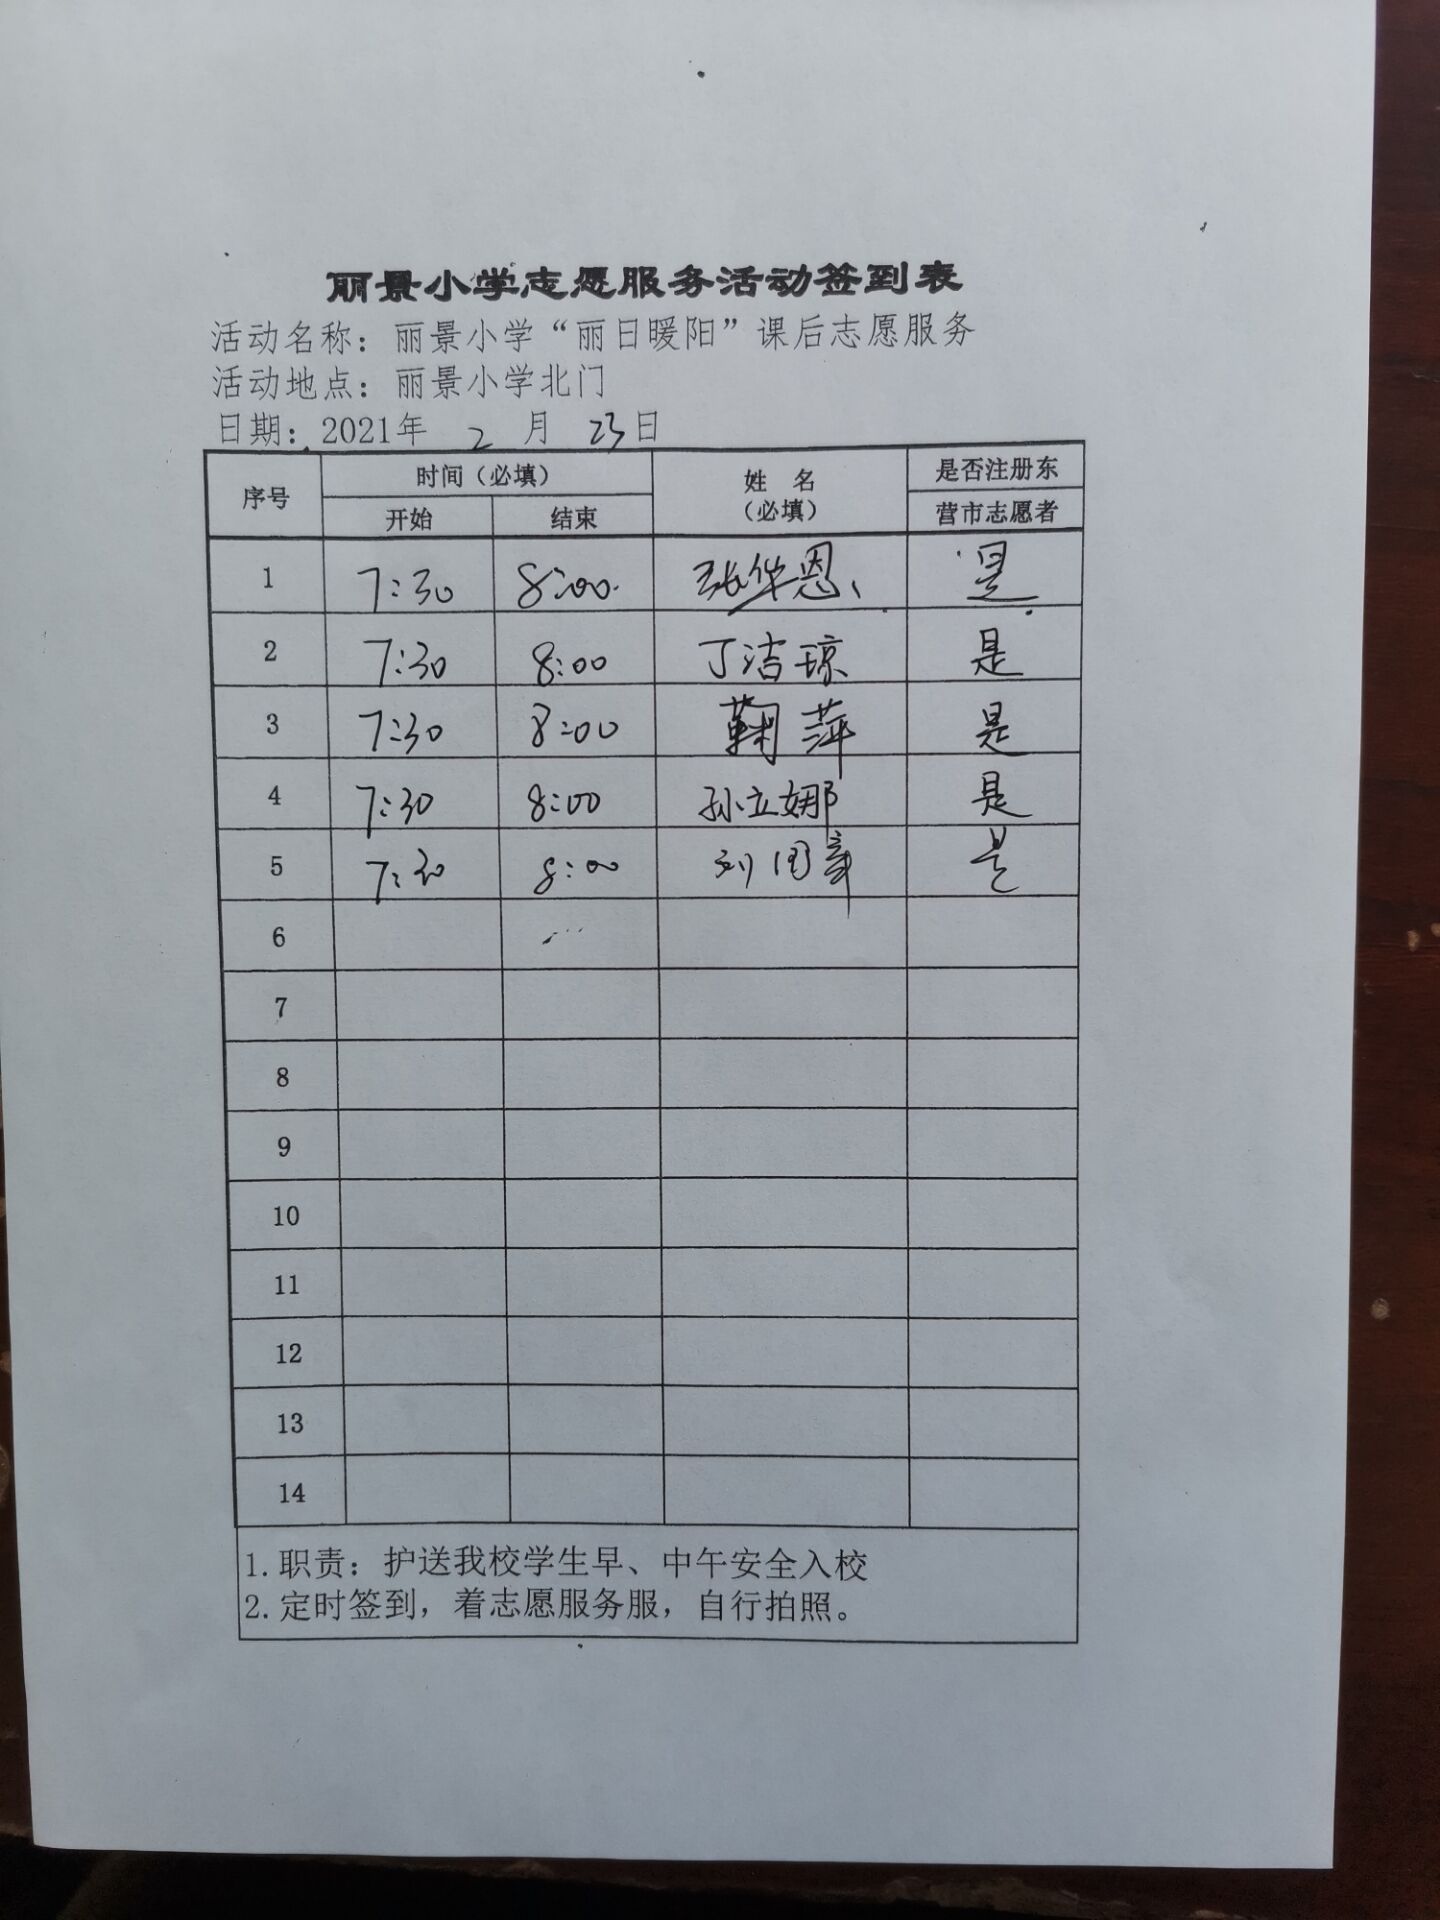 丽景小学志愿服务活动签到表
活动名称：丽景小学“丽日暖阳”课后志愿服务
活动地点：丽景小学北门
日期：2021年 2 月 23日
序号 时间（必填） 姓 名（必填） 是否注册东营市志愿者
开始 结束
1 7:30 8:00 张华恩 是
2 7:30 8:00 丁洁琼 是
3 7:30 8:00 鞠萍 是
4 7:30 8:00 孙立娜 是
5 7:30 8:00 是
6
7
8
9
10
11
12
13
14
1.职责：护送我校学生早、中午安全入校
2.定时签到，着志愿服务服，自行拍照。